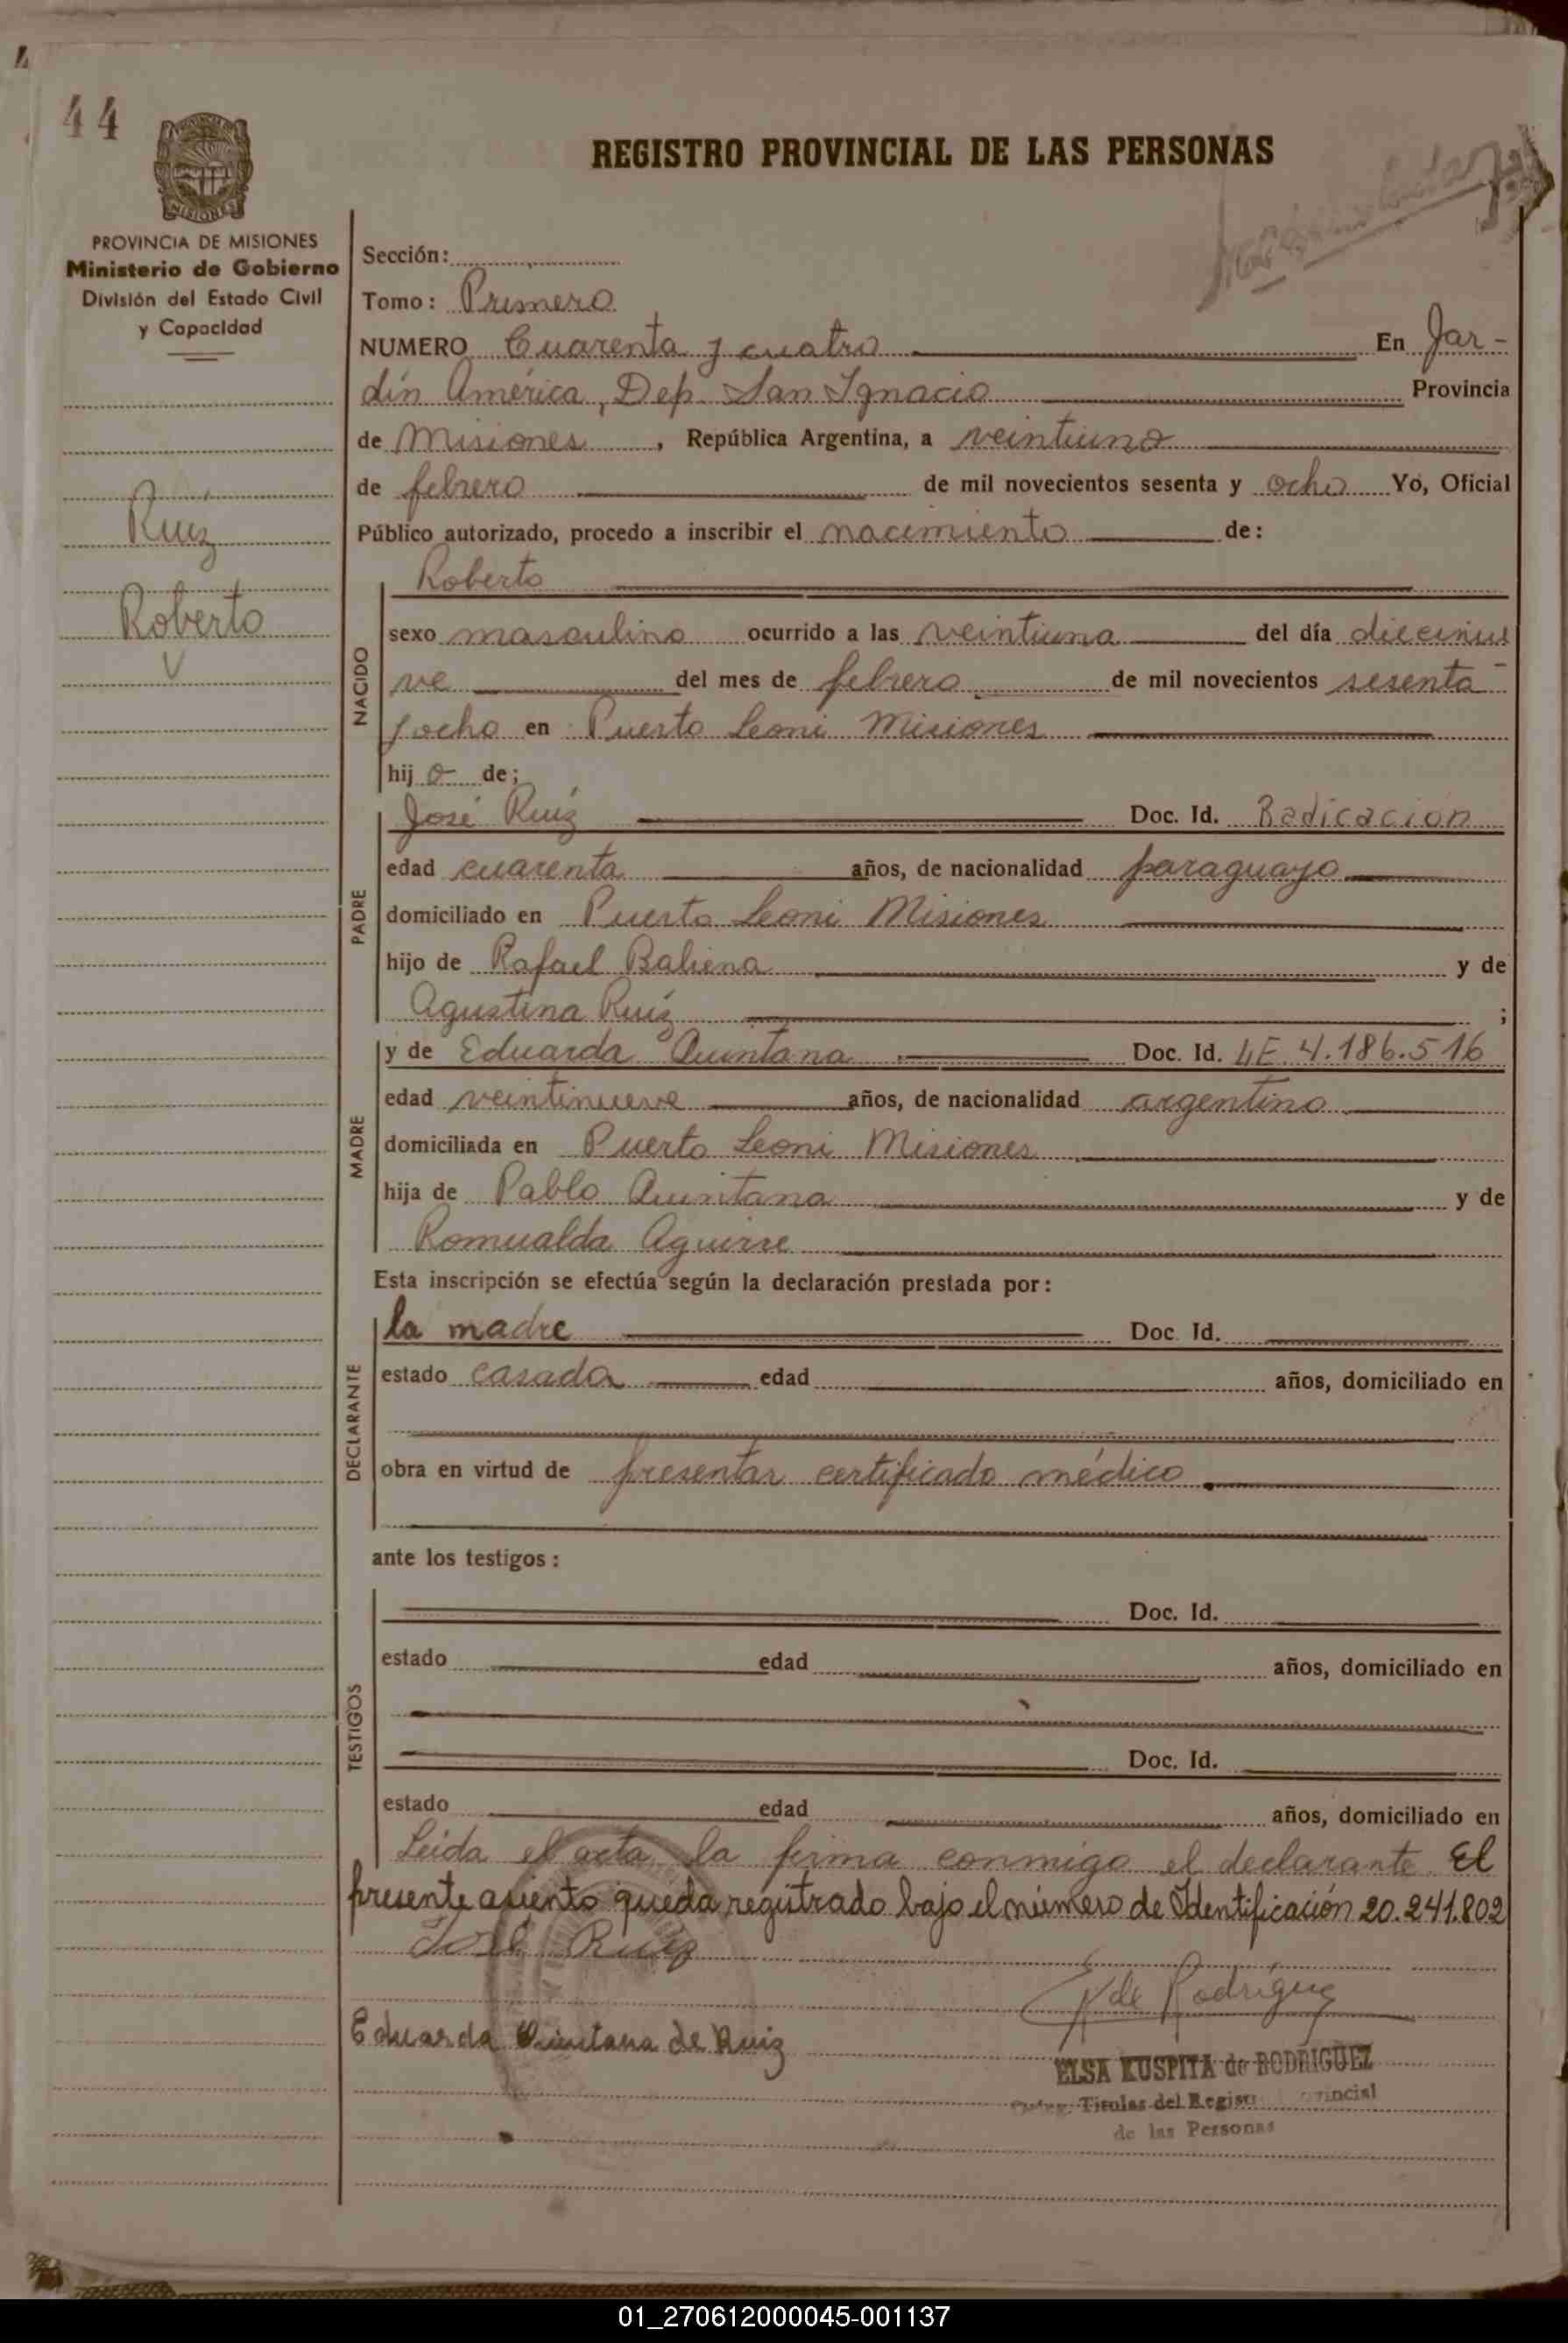 44
REGISTRO PROVINCIAL DE LAS PERSONAS
MISIONES
PROVINCIA DE MISIONES
Ministerio de Gobierno
División del Estado Civil
y Capacidad
Ruíz
Roberto
Sección:
Tomo: Primero
NUMERO Cuarenta y cuatro En Jar-
dín América, Dep. San Ignacio Provincia
de Misiones, República Argentina, a veintiuno
de febrero de mil novecientos sesenta y ocho Yo, Oficial
Público autorizado, procedo a inscribir el nacimiento de:
NACIDO
Roberto
sexo masculino ocurrido a las veintiuna del día diecinue
ve del mes de febrero de mil novecientos sesenta-
y ocho en Puerto Leoni Misiones
hij o de;
PADRE
José Ruíz Doc. Id. Radicación
edad cuarenta años, de nacionalidad paraguayo
domiciliado en Puerto Leoni Misiones
hijo de Rafael Baliena y de
Agustina Ruíz ;
MADRE
y de Eduarda Quintana Doc. Id. LE. 4.186.516
edad veintinueve años, de nacionalidad argentino
domiciliada en Puerto Leoni Misiones
hija de Pablo Quintana y de
Romualda Aguirre
Esta inscripción se efectúa según la declaración prestada por:
DECLARANTE
la madre Doc. Id.
estado casada edad años, domiciliado en
obra en virtud de presentar certificado médico
ante los testigos:
TESTIGOS
Doc. Id.
estado edad años, domiciliado en
Doc. Id.
estado edad años, domiciliado en
Leída el acta la firma conmigo el declarante. El
presente asiento queda registrado bajo el número de Identificación 20.241.802
José Ruiz
E K de Rodríguez
Eduarda Quintana de Ruiz
ELSA KUSPITA de RODRIGUEZ
Titular del Registro Provincial
de las Personas
01_270612000045-001137